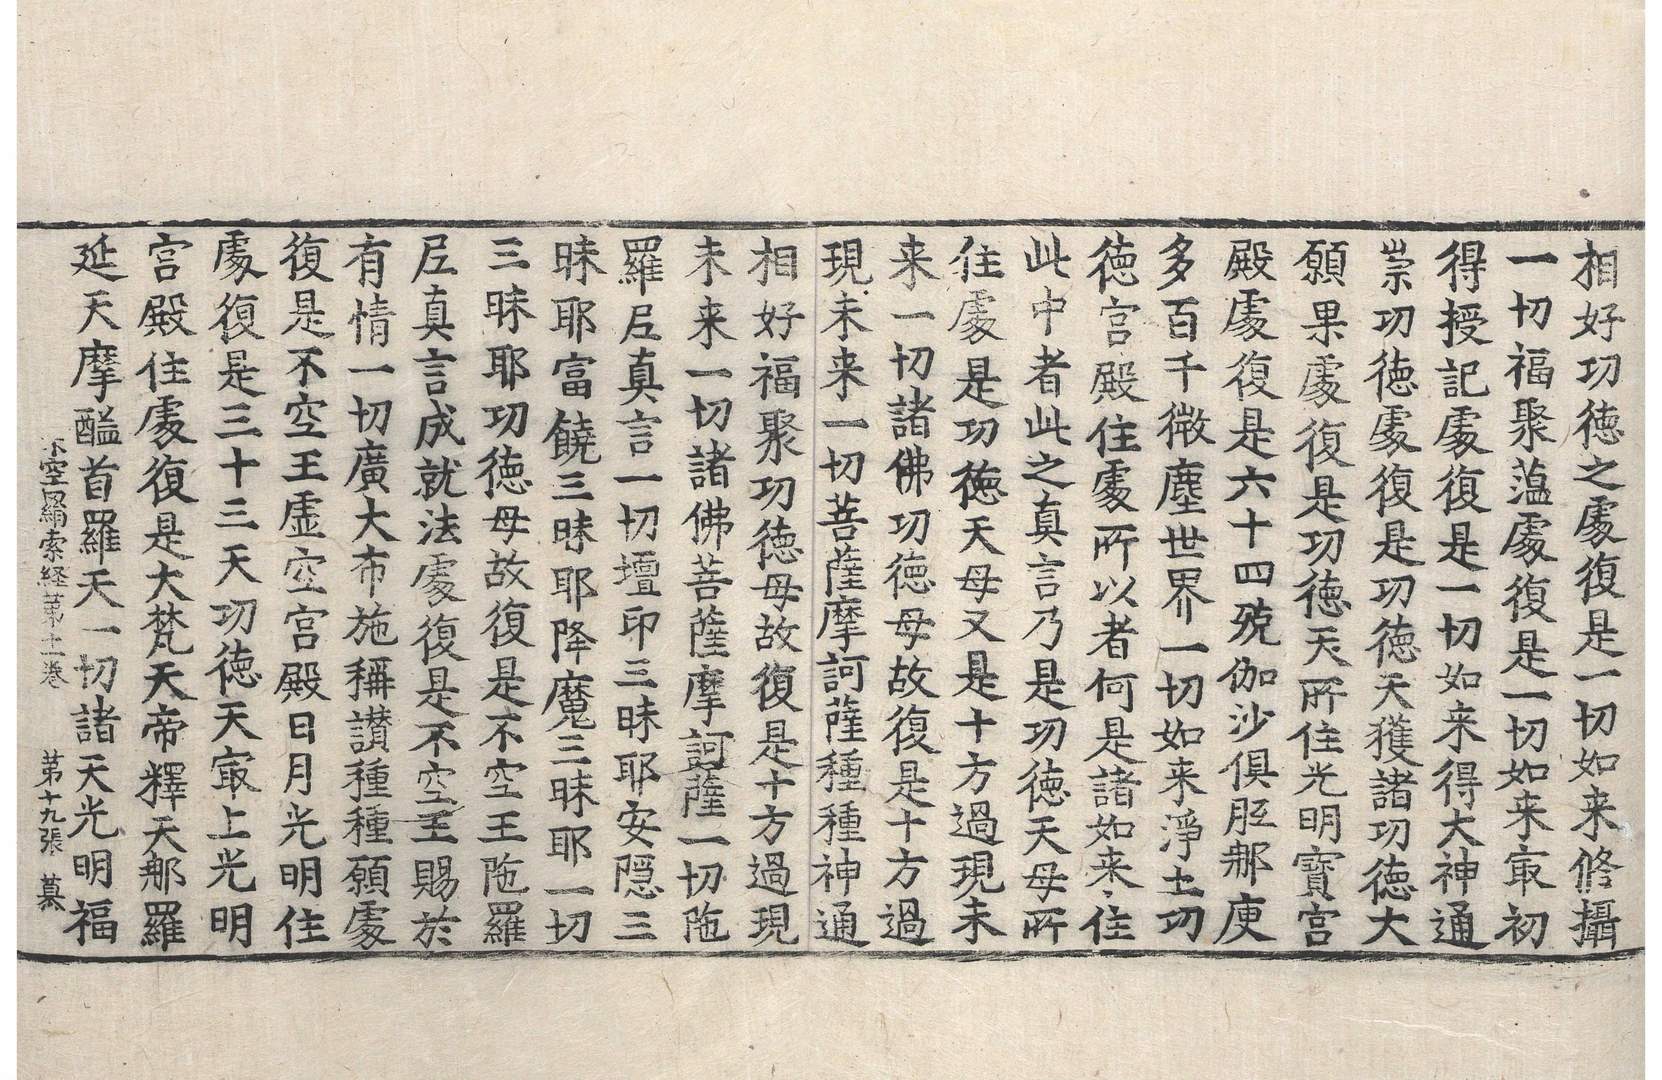 相好功徳之處復是一切如来修攝
一切福聚蕰處復是一切如来㝡初
得授記處復是一切如来得大神通
崇功徳處復是功徳天獲諸功徳大
願果處復是功徳天所住光明寶宮
殿處復是六十四殑伽沙俱胝那庾
多百千微塵世界一切如来淨土功
徳宮殿住處所以者何是諸如来住
此中者此之真言乃是功徳天母所
住處是功徳天母又是十方過現未
来一切諸佛功徳母故復是十方過
現未来一切菩薩摩訶薩種種神通
相好福聚功徳母故復是十方過現
未来一切諸佛菩薩摩訶薩一切陁
羅尼真言一切壇印三昧耶安隱三
昧耶富饒三昧耶降魔三昧耶一切
三昧耶功徳母故復是不空王陁羅
尼真言成就法處復是不空王賜於
有情一切廣大布施稱讃種種願處
復是不空王虛空宮殿日月光明住
處復是三十三天功徳天㝡上光明
宮殿住處復是大梵天帝釋天那羅
延天摩醯首羅天一切諸天光明福
不空羂索経第十一卷 第十九張 慕